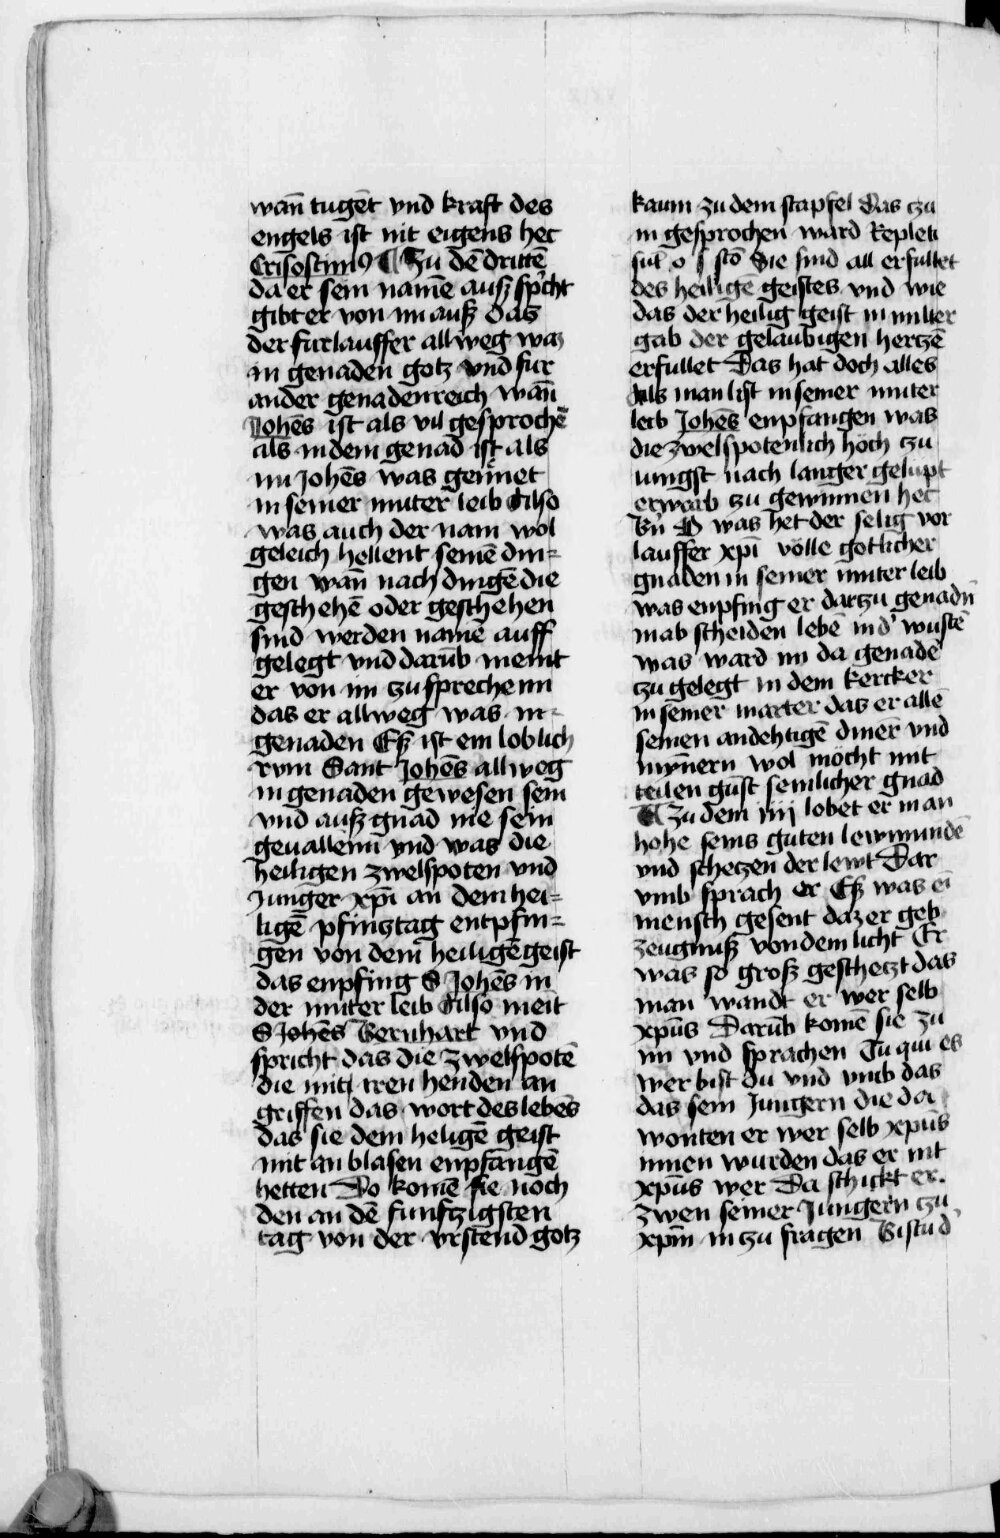 wan̄ tugēt vnd kraft des
engels ist nit eigens hec
Crisostimꝰ ¶ Zu dē dritten̄
da er sein namē ausz spͥcht
gibt er von im ausz Das
der furlauffer allweg waz
in genaden gotz vnd fur
ander genadenreich wan̄
Johēs ist als vil gesprochē
als in dem genad ist als
im Johēs was genn̄et
in seiner muter leib Also
was auch der nam wol
geleich hellent seinē din=
gen wan̄ nach dingē die
geschehē oder geschehen
sind werden namē auff
gelegt vnd darūb meint
er von im zu sprechenn
das er allweg was in=
genaden Esz ist ein loblich
rum Sant Johēs allweg
in genaden gewesen sein
vnd ausz gnad nie sein
geuallenn vnd was die
heiligen zwelfpoten vnd
Junger xp̄i an dem hei=
ligē pfingztag entpfin=
gen von dem heiligē geist
das enpfing S Johēs in
der muter leib Also meīt
S Johēs Bernhart vnd
spricht das die zwelfpotē
die mit iren henden an
griffen das wort des lebēs
das sie dem heligē geist
mit an blasen enpfangē
hetten Do komē sie noch
den an dē funfczigsten
tag von der vrstend gotz
kaum zu dem stapfel Das czu
in gesprochen ward Repleti
sūt o s stō Sie sind all erfullet
des heiligē geistes vnd wie
das der heilig geist in milter
gab der gelaubigen hertzē
erfullet Das hat doch alles
Als man list in seiner muter
leib Johēs enpfangen was
die zwelfpoten lich hoch czu
iungst nach langer gelupt
erwarb zu gewinnen hec
was het der selig vor
lauffer xp̄i volle gotlicher
gnaden in seiner muter leib
was enpfing er darczu genadn̄
in ab scheiden lebē in dͦ wustē
was ward im da genadē
czu gelegt in dem kercker
in seiner marter das er allē
seinen andehtigē dinēr vnd
mynern wol mocht mit
teilen gūst semlicher gnad
¶ Zu dem iiij lobet er in an
hohe seins guten lewmundē
vnd schetzen der lewt Dar
vmb sprach er Esz was eī
mensch gesent daz er geb
zeugnusz von dem licht Er
was so grosz geschetzt das
man wandt er wer selb
xp̄us Darūb komē sie zu
im vnd sprachen Tu qui es
wer bist du vnd vmb das
das sein Jungern die da
wonten er wer selb xp̄us
innen wurden das er nit
xp̄us wer Da schickt er
zwen seiner Jungern czu
xp̄m in zu fragen Bistu dͦ